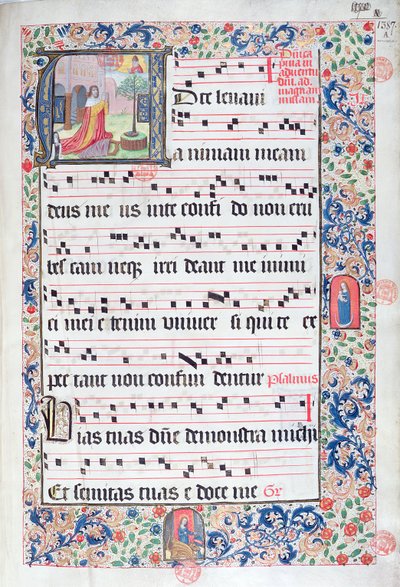 1387
A
Dn̄ica
p̄ma in
aduentu
dn̄i. ad.
magnam
missam.
Ad te leuaui
a nimam meam
deus me us inte confi do non eru
bes cam neq̨ irri deant me inimi
ci mei e tenim vniuer si qui te ex
pec tant non confun dentur Psalmus
Vias tuas dn̄e demonstra michi
Et semitas tuas e doce me Gr̄